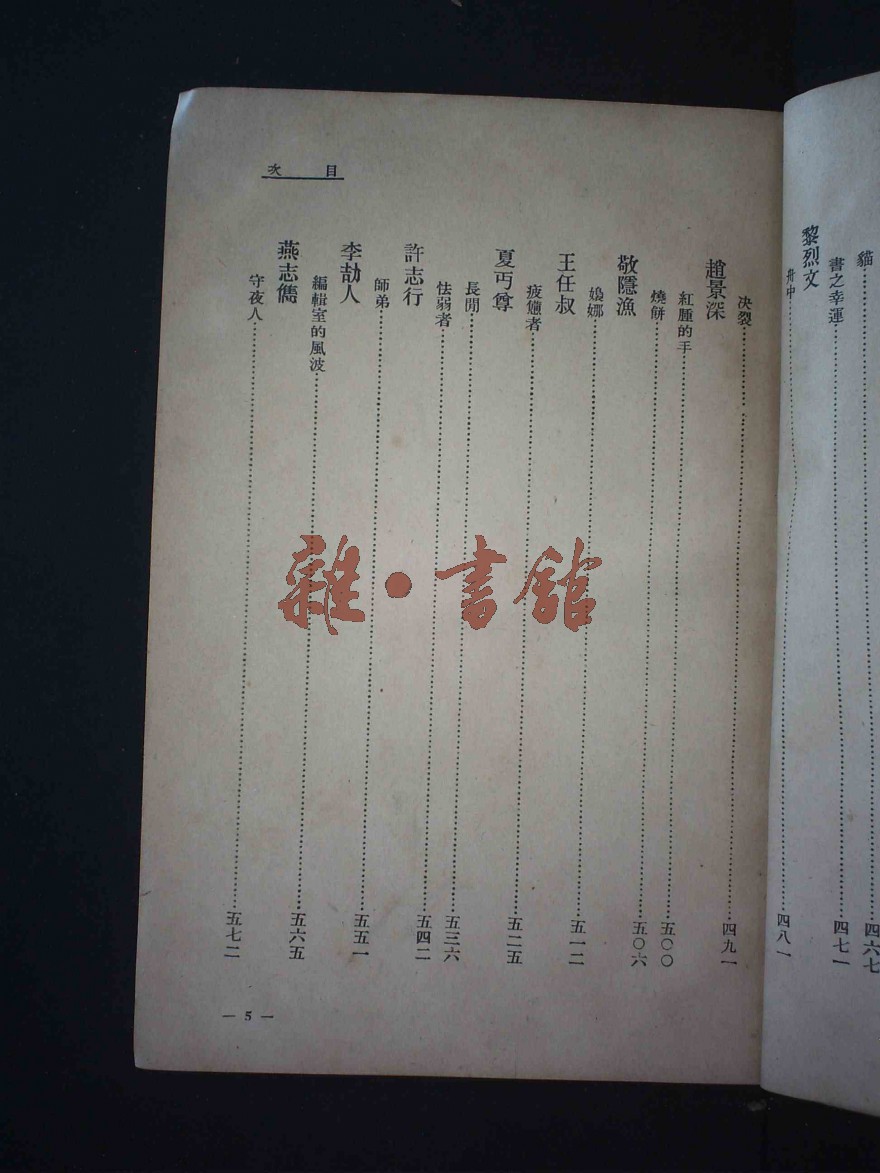 貓……四六七
書之幸運……四七一
黎烈文
舟中……四八一
目次
決裂……四九一
趙景深
紅腫的手……五〇〇
燒餅……五〇六
敬隱漁
嬝娜……五一二
王任叔
疲憊者……五二五
夏丏尊
長閒……五三六
怯弱者……五四二
許志行
師弟……五五一
李劼人
編輯室的風波……五六五
燕志儁
守夜人……五七二
— 5 —
雜·書館